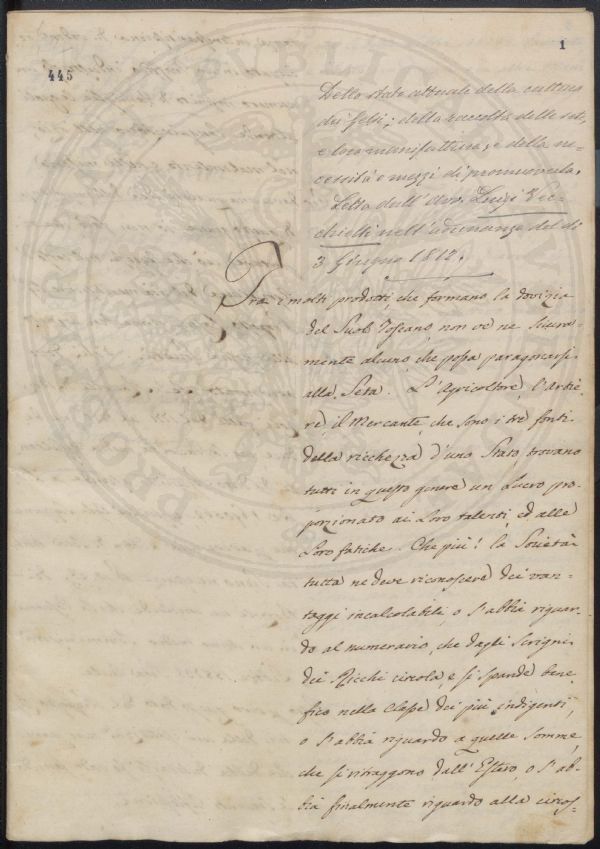 1
445
Dello stato attuale della cultura
dei gelsi; della raccolta delle sete,
e loro manifattura, e della ne-
cessità e mezzi di promuoverla.
Letta dall' Avv. Luigi
nell'adunanza del dì
3 Giugno 1812.
Fra i molti prodotti che formano la dovizia
del Suolo Toscano, non ve ne sicura-
mente alcuno, che possa paragonarsi
alla Seta. L'Agricoltore, l'Artie-
re, il Mercante, che sono i tre fonti
della ricchezza d'uno Stato, trovano
tutti in questo genere un Lucro pro-
porzionato ai loro talenti, ed alle
loro fatiche. Che più! la Società
tutta ne deve riconoscere dei van-
taggi incalcolabili, o s'abbia riguar-
do al numerario, che dagli Scrigni
dei Ricchi circola, e si spande bene-
fico nella Classe dei più indigenti,
o s'abbia riguardo a quelle somme,
che si ritraggono dall'Estero, o s'ab-
bia finalmente riguardo alla circos-